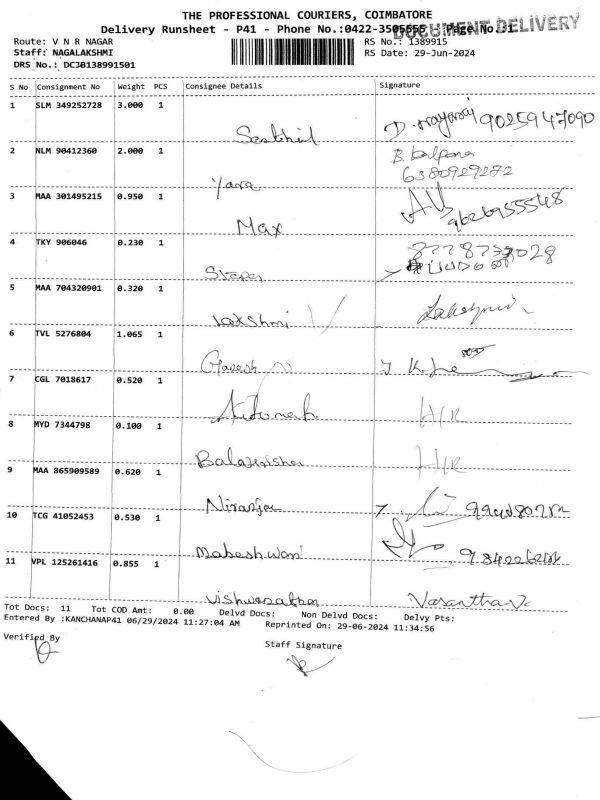 THE PROFESSIONAL COURIERS, COIMBATORE
Delivery Runsheet - P41 - Phone No.:0422-3505555 Page No.:1
DOCUMENT DELIVERY
Route: V N R NAGAR RS No.: 1389915
Staff: NAGALAKSHMI RS Date: 29-Jun-2024
DRS No.: DCJB138991501
S No Consignment No Weight PCS Consignee Details Signature
1 SLM 349252728 3.000 1
Senthil D. 9025947090
2 NLM 90412360 2.000 1 B. Kalpana
6380929272
Yara
3 MAA 301495215 0.950 1
Max 9626955548
4 TKY 906046 0.230 1
5 MAA 704320901 0.320 1
Lakshmi Lakshmi
6 TVL 5276804 1.065 1
Ganesh
7 CGL 7018617 0.520 1
H/R
8 MYD 7344798 0.100 1
Balakrishnan H/R
9 MAA 865909589 0.620 1
Niranjan
10 TCG 41052453 0.530 1
Maheshwari
11 VPL 125261416 0.855 1
Vasantha
Tot Docs: 11 Tot COD Amt: 0.00 Delvd Docs: Non Delvd Docs: Delvy Pts:
Entered By :KANCHANAP41 06/29/2024 11:27:04 AM Reprinted On: 29-06-2024 11:34:56
Verified By Staff Signature